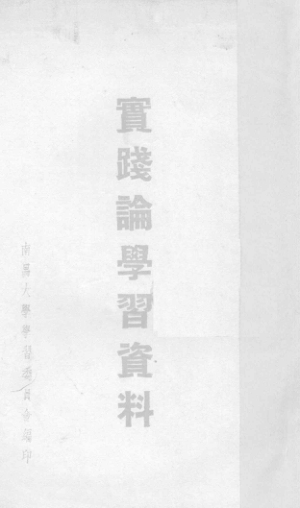 實踐論學習資料
南開大學學習委員會編印